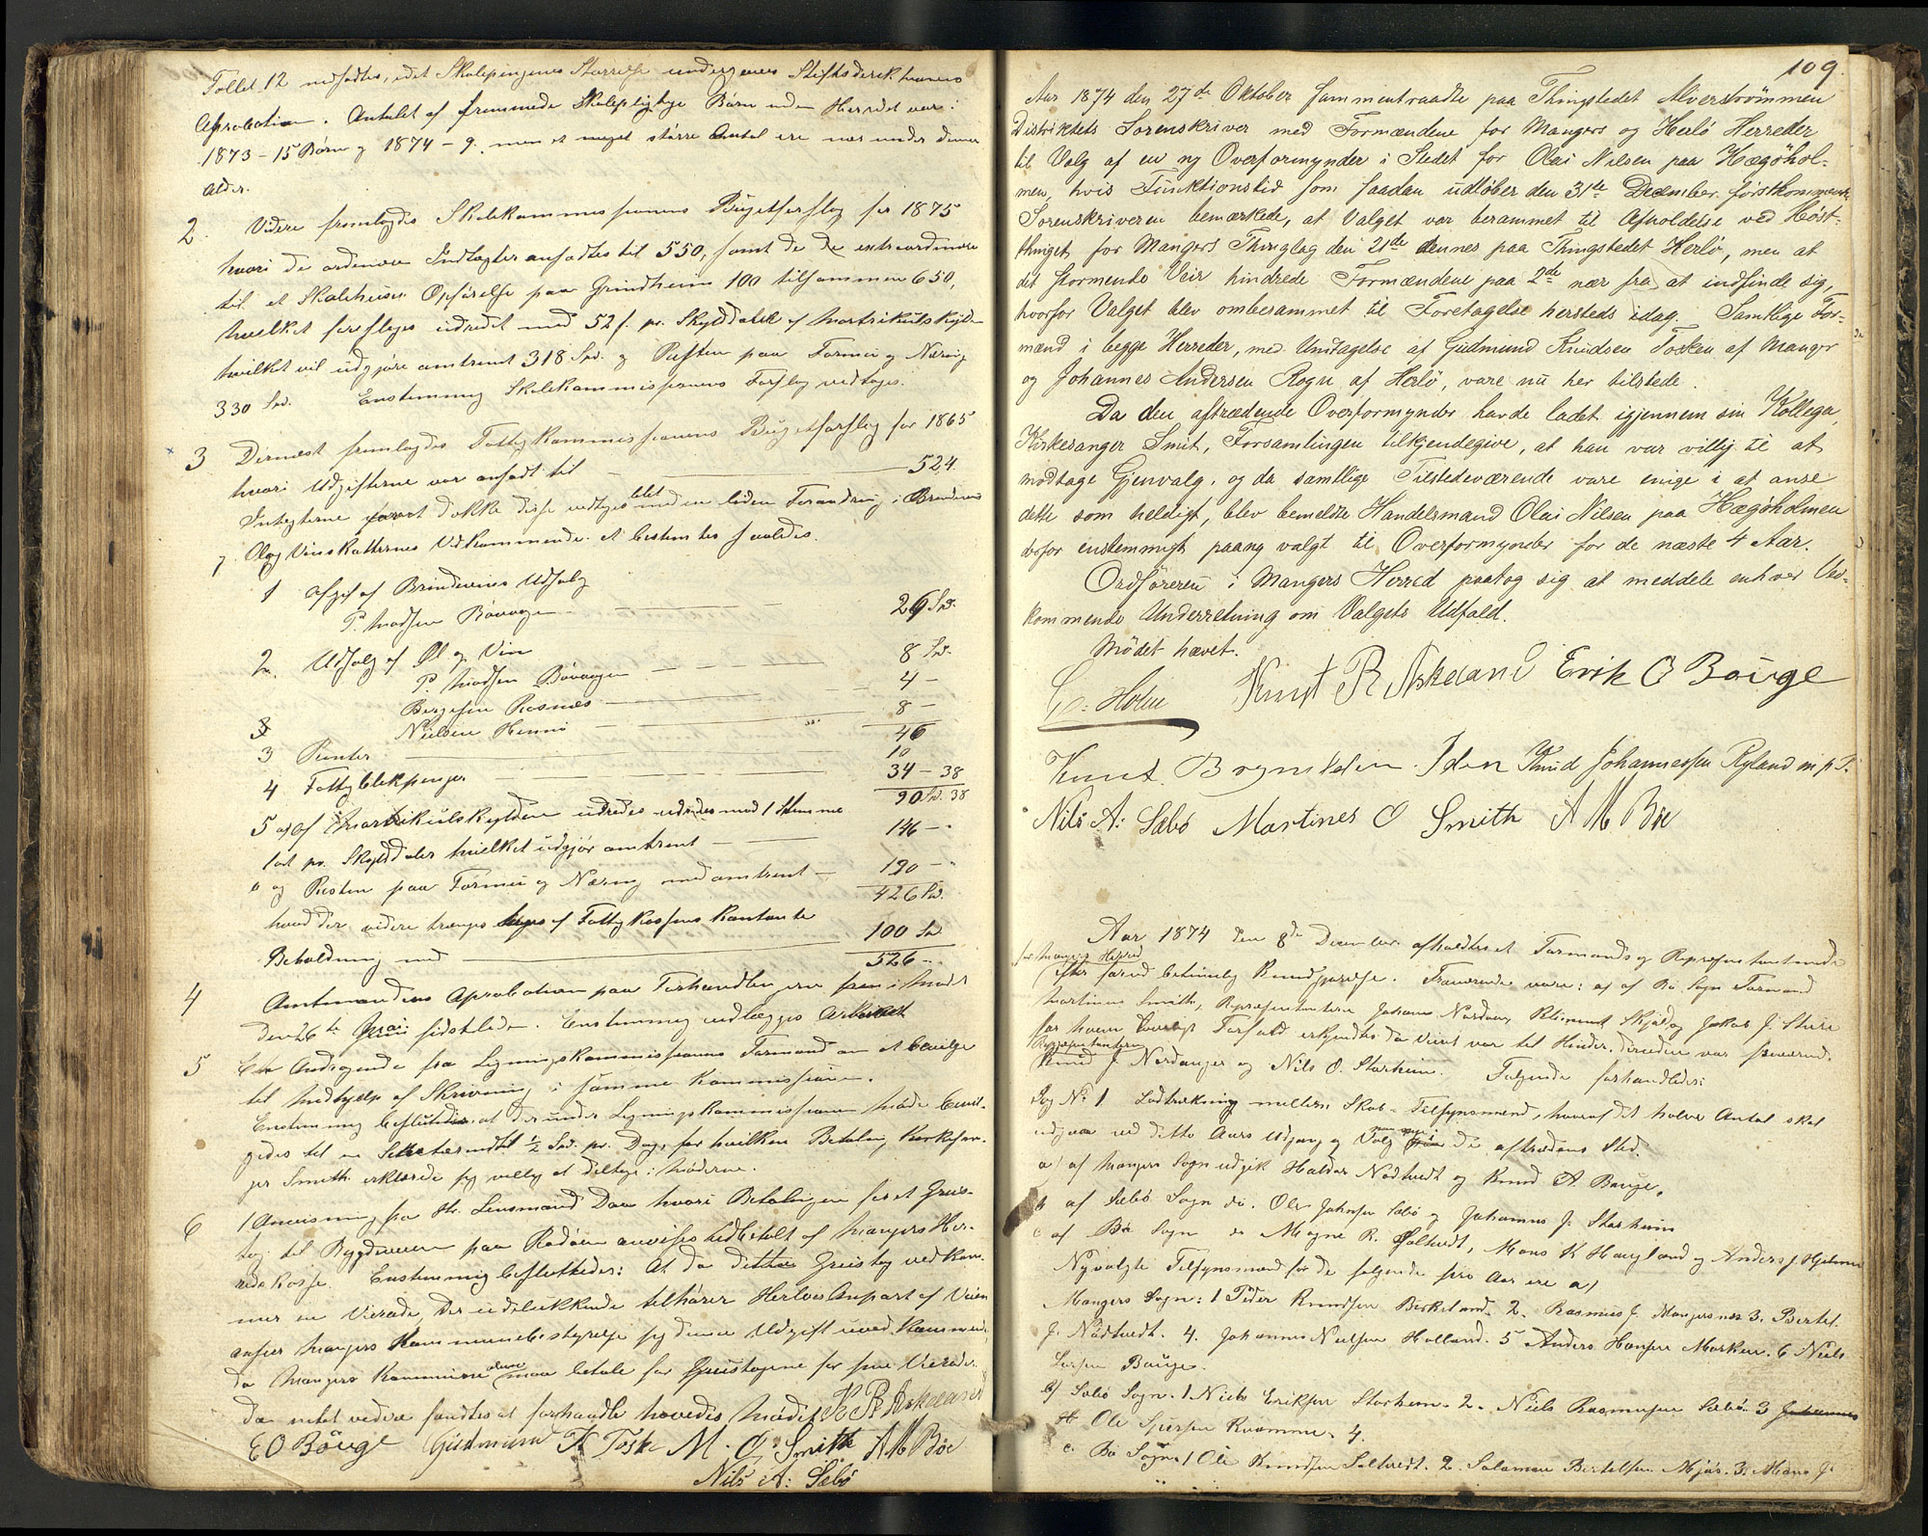 Tallet 12 nedsattes, idet Skolepengenes Størrelse undergives Stiftsdirektionens
Aprobation. Antalet af fremmede Skolepligtige Børn uden Herredet var:
1873 - 15 Børn og 1874 - 9. men et meget større Antal ere nær under denne
Alder.
2. Videre fremlagdes Skolekommissionens Bugetforslag for 1875
hvori de ordinære Indtægter ansadtes til 550, samt de extraordinære
til et Skolehuses Opførelse paa Grindheim 100 tilsammen 650,
hvilket foresloges udredet med 52 s. pr. Skylddaler af Matrikulskylden
hvilket vil udgjøre omtrent 318 Spd. og Resten paa Formue og Næring
330 Spd. Enstemmig Skolekommissionens Forslag vedtoges.
3 Dernæst fremlagdes Fattigkommissionens Bugetforslag for 1865
hvori Udgifterne var ansadt til 524.
Indtegterne med den liden Forandring i Brændevins
og Øl og Vinskatternes Vedkommende at bestemtes saaledes.
1 Afgif af Brændevins Udsalg
P. Madsen Bøvaagen 26 Spd.
2. Udsalg af Øl og Vin
P. Madsen Bøvaagen 8 Spd.
Bergesen Rosnæs 4 -
Nielsen Hennø 8 -
46
3 Renter 10
4 Fattiglekspenger 34 - 38
90 Spd. 38
5 af Matrikulskylden udredes med 1 Stemme
lat pr. Skylddaler hvilket udgjør omtrent 146 -
og Resten paa Formue og Næring med omtrent 190 -
426 Spd.
hvad der videre trænges af Fattigkassens Kontante
Beholdning med 100 Sp
526 -
4 Amtmandens Aprobation paa Forhandlingerne frem i Mødet
den 26te Mai sidstleden. Enstemmig vedlægges Arkivet
5 En Andragende fra Ligningskommissionens Formand om at bevilge
til Medhjælp af Skrivning i samme Kommission.
Enstemmig besluttedes at der under Ligningskommissionens Møde bevil-
gedes til en Sekretær indtil ½ Spd. pr. Dag, for hvilken Betaling Kirkesan-
ger Smith erklærede sig villig at deltage i Møderne.
6 1 Anvisning fra Hr. Lensmand Daae hvori Betalingen for et Greis-
tog til Bygdeveien paa Radøen anvises udbetalt af Mangers Her-
redskasse. Enstemmig besluttedes: At da dette Greistog vedkom-
mer en Veirode, der udelukkende tilhører Herløs Anpart af Veien
anser Mangers Kommunebestyrelse sig denne Udgift uvedkommende
da Mangers Kommune alene maa betale for Greistogene for sine Veiroder.
Da intet videre fandtes at forhandle hævedes Mødet K R Askeland
E O Bøuge Gudmund K Toske M. O. Smith A M Bøe
Nils A: Sæbø
109.
Aar 1874 den 27de Oktober sammentraadte paa Thingstedet Alverstrømmen
Distriktets Sorenskriver med Formændene for Mangers og Herlø Herreder
til Valg af en ny Overformynder i Stedet for Olai Nilsen paa Hægøhol-
men, hvis Funktionstid som saadan udløber den 31te December førstkommende
Sorenskriveren bemærkede, at Valget var berammet til Afholdelse ved Høst-
thinget for Mangers Thinglag den 21de dennes paa Thingstedet Herlø, men at
det stormende Veir hindrede Formændene paa 2de nær fra at indfinde sig,
hvorfor Valget blev omberammet til Foretagelse hersteds idag. Samtlige For-
mænd i begge Herreder, med Undtagelse af Gudmund Knudsen Tosken af Manger
og Johannes Andersen Rogn af Herlø, vare nu her tilstede.
Da den aftrædende Overformynder havde ladet igjennem sin Kollega,
Kirkesanger Smit, Forsamlingen tilkjendegive, at han var villig til at
modtage Gjenvalg, og da samtlige Tilstedeværende vare enige i at anse
dette som heldigt, blev bemeldte Handelsmand Olai Nilsen paa Hægøholmen
derfor enstemmigt paany valgt til Overformynder for de næste 4 Aar.
Ordføreren i Mangers Herred paatog sig at meddele enhver Ved-
kommende Underretning om Valgets Udfald.
Mødet hævet.
Holm Knut R Askeland Erik O Bøuge
Knut Brynildsen Iden Knud Johannessen Ryland m. p. P.
Nils A: Sæbø Martines O Smith A M Bøe
Aar 1874 den 8de December afholdtes et Formands og Repræsentantmøde
for Mangers Herred
efter forud betimelig Kundgjørelse. Fraværende vare: af Bø Sogn Formand
Martinus Smith, Repræsentanterne Johannes Nordanger, Skjelog Jakob J. Sture
for hvem lovligt Forfald erkjendtes da Veiret var til Hinder. Desuden var fraværende
Repræsentanterne
Knud J. Nordanger og Nils O. Storheim. Følgende forhandledes:
Sag No 1 Lodtrækning mellem Skole-Tilsynsmænd, hvoraf det halve Antal skal
udgaa ved dette Aars Udgang og Valg paa nye i de aftrædenes Sted.
a) af Mangers Sogn udgik Haldor Nødtvedt og Knud A. Bøuge,
b af Sæbø Sogn do. Ole Johnsen Sæbø og Johannes J. Storheim
c af Bø Sogn do Mogne R. Soltvedt, Mons K Haugland og Anders J. Hjelmen
Nyvalgte Tilsynsmænd for de følgende fire Aar ere a)
Mangers Sogn: 1 Peder Knudsen Birkeland. 2. Rasmus J. Mangersnes 3. Bertel
J. Nødtvedt. 4. Johannes Nielsen Holland. 5 Anders Hansen Marken. 6 Niels
Larsen Bøuge.
b) Sæbø Sogn. 1 Niels Eriksen Storheim. 2. Niels Rasmussen Sæbø. 3 Johannes
H Ole Sjursen Kvamme. 4.
c. Bø Sogn. 1 Ole Knudsen Soltvedt. 2. Salamon Bertelsen Mjøs. 3. Mons J.